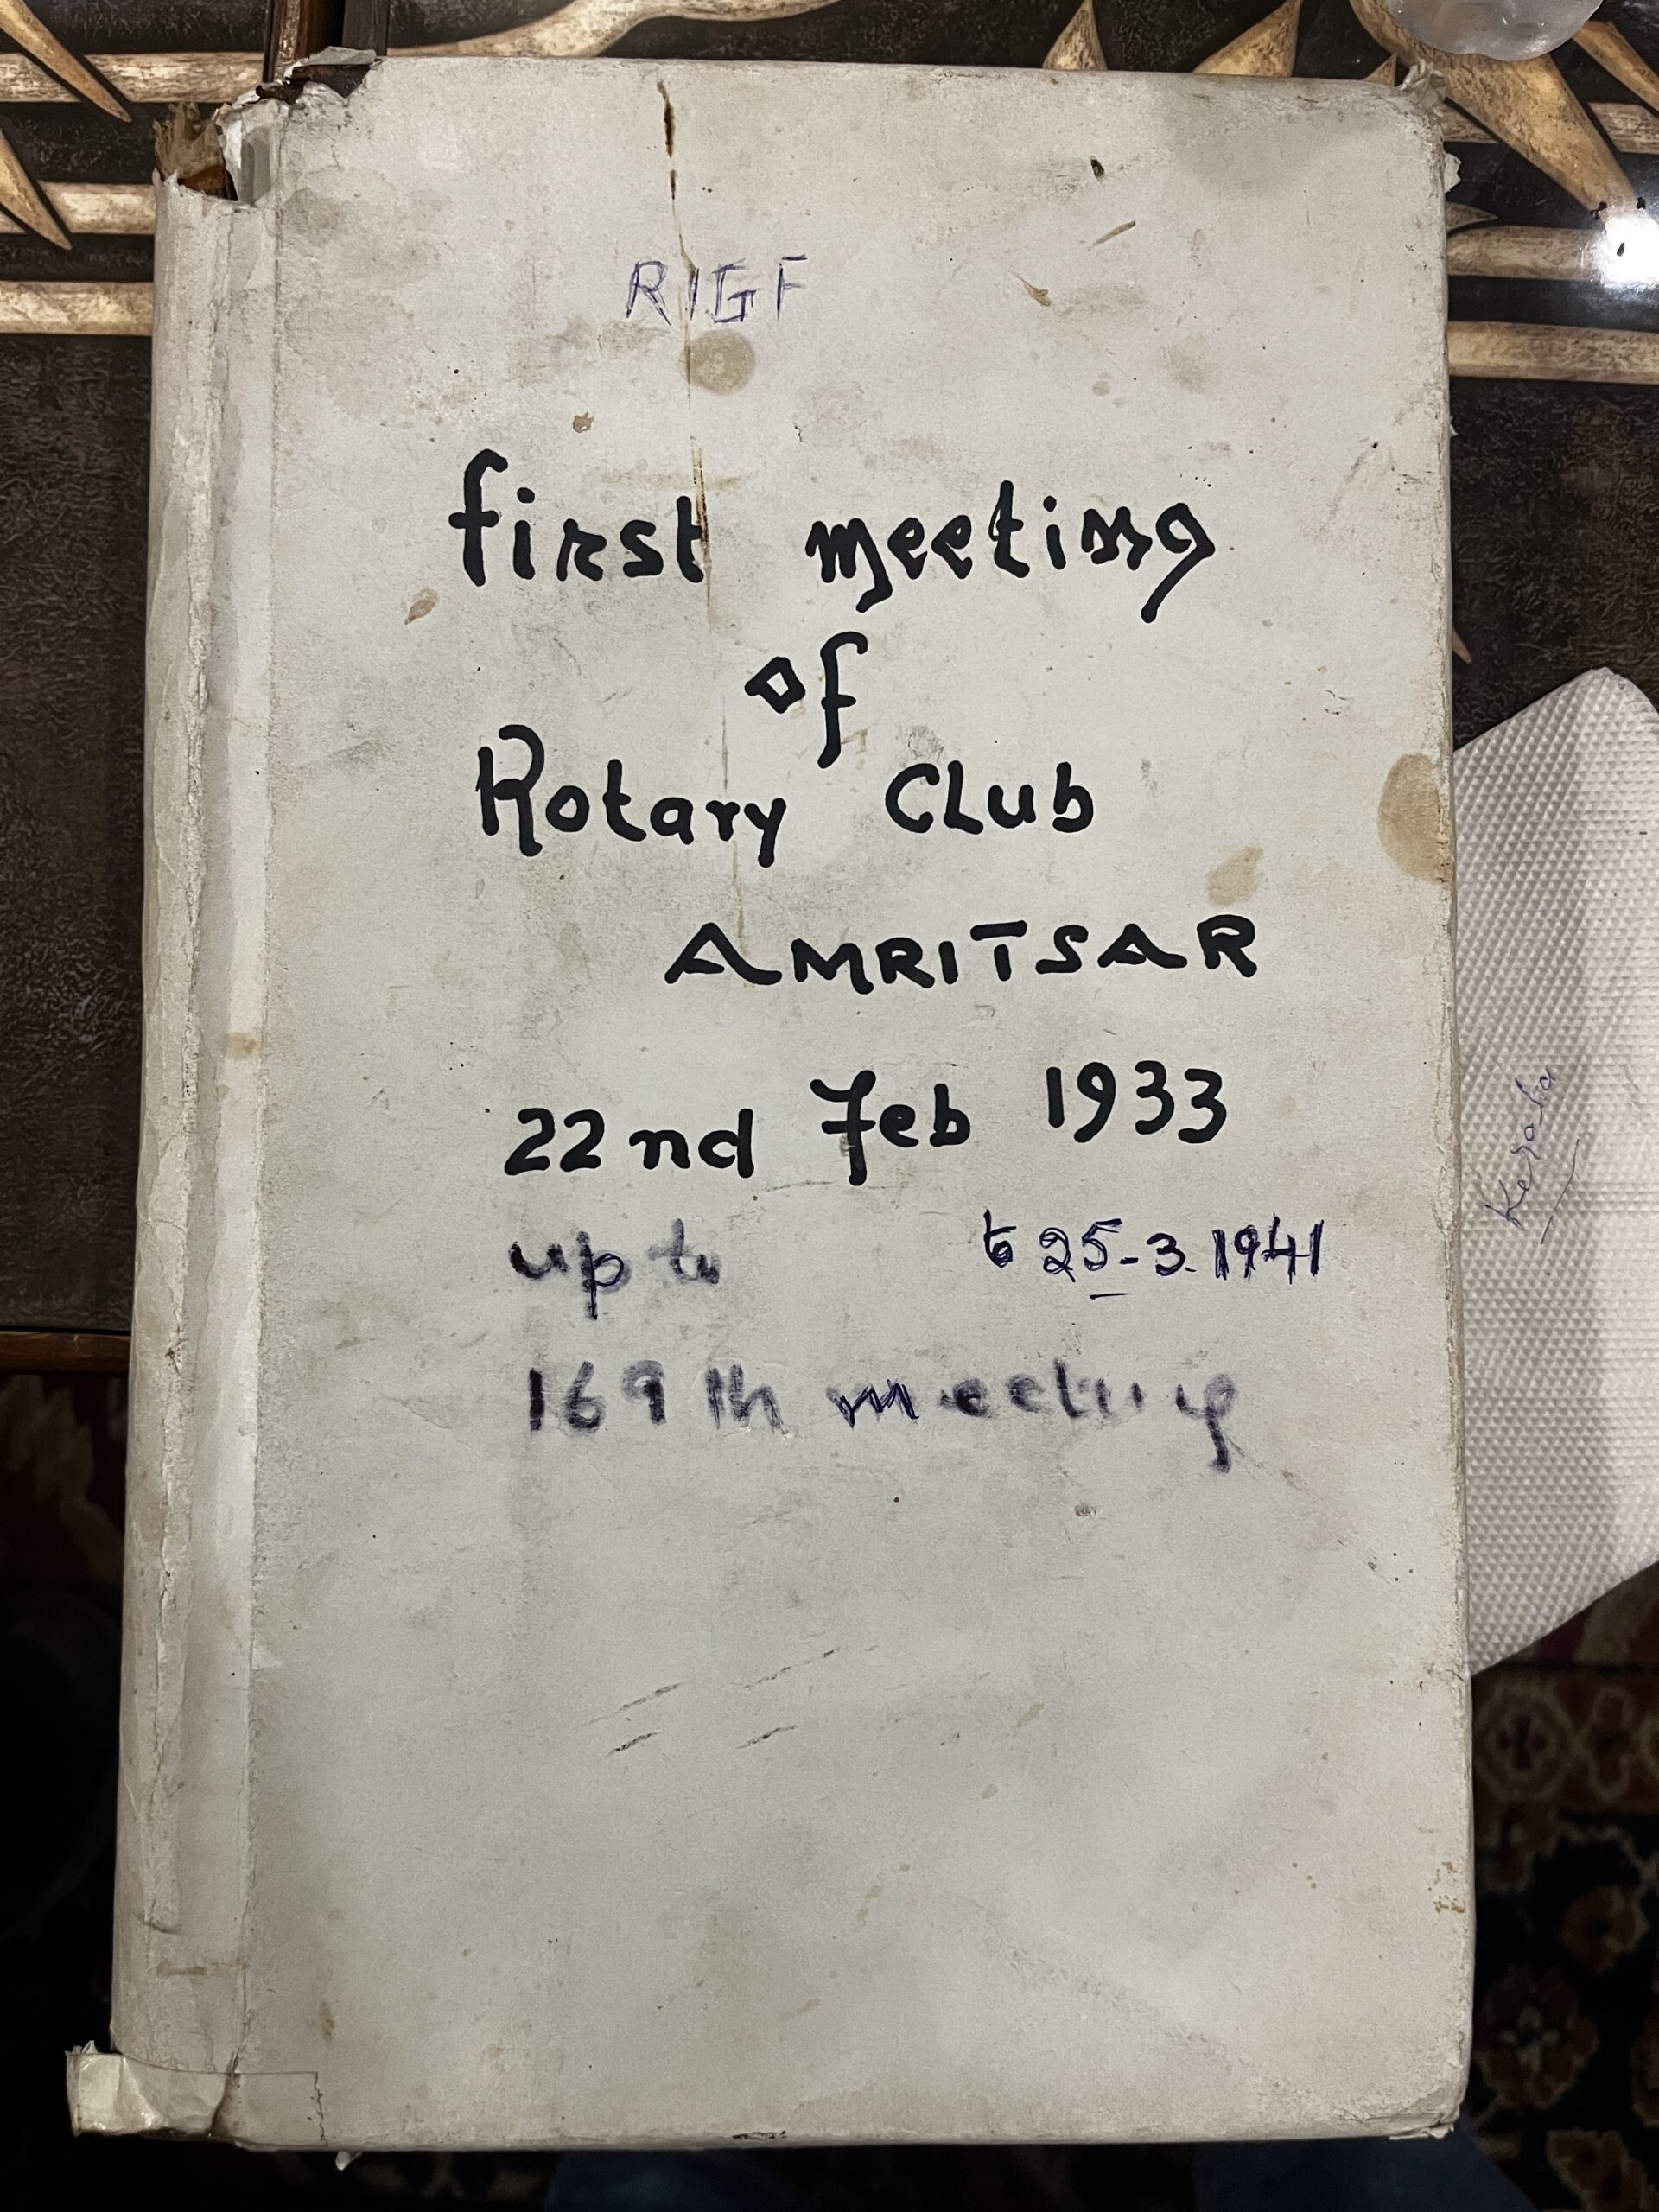 RIGF
first meeting
of
Rotary Club
AMRITSAR
22nd Feb 1933
up to to 25-3.1941
169th meeting